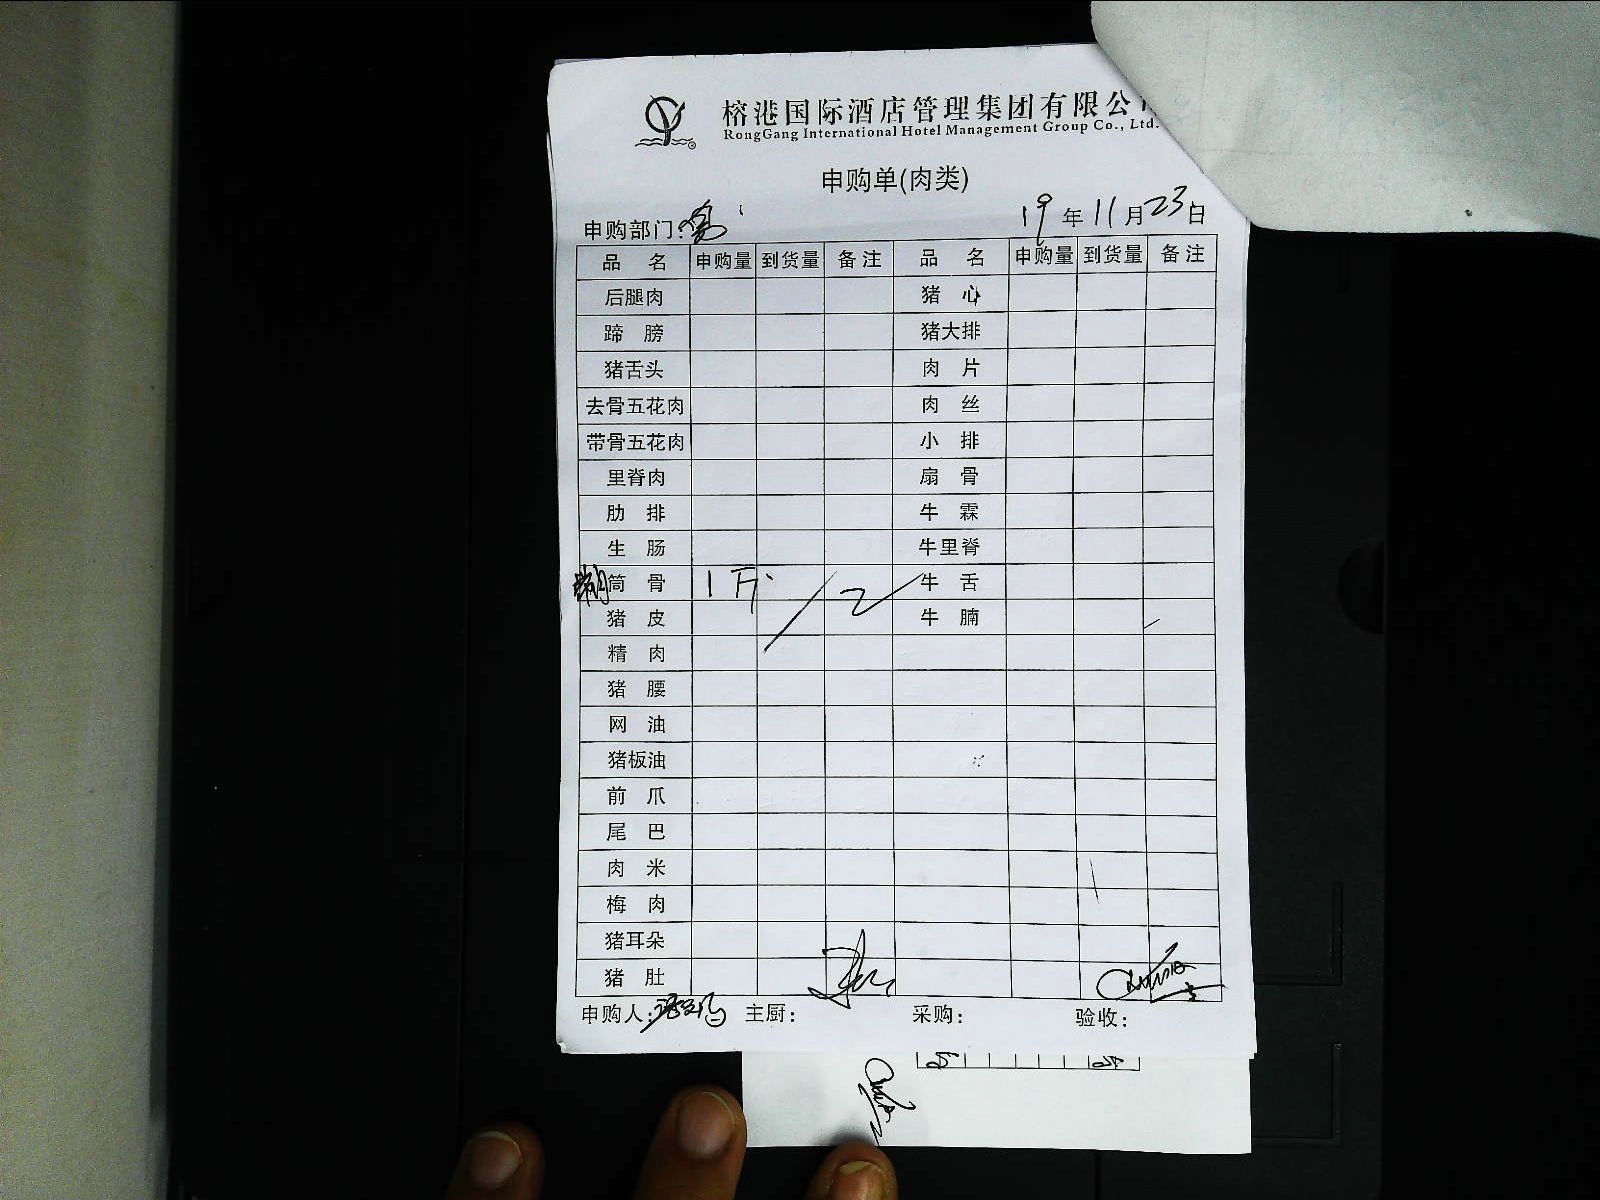 榕港国际酒店管理集团有限公
RongGang International Hotel Management Group Co., Ltd.
申购单(肉类)
申购部门: 19年11月23日
品 名 申购量 到货量 备注 品 名 申购量 到货量 备注
后腿肉 猪 心
蹄 膀 猪大排
猪舌头 肉 片
去骨五花肉 肉 丝
带骨五花肉 小 排
里脊肉 扇 骨
肋 排 牛 霖
生 肠 牛里脊
筒 骨 1斤 牛 舌
猪 皮 牛 腩
精 肉
猪 腰
网 油
猪板油
前 爪
尾 巴
肉 米
梅 肉
猪耳朵
猪 肚
申购人: 主厨: 采购: 验收: